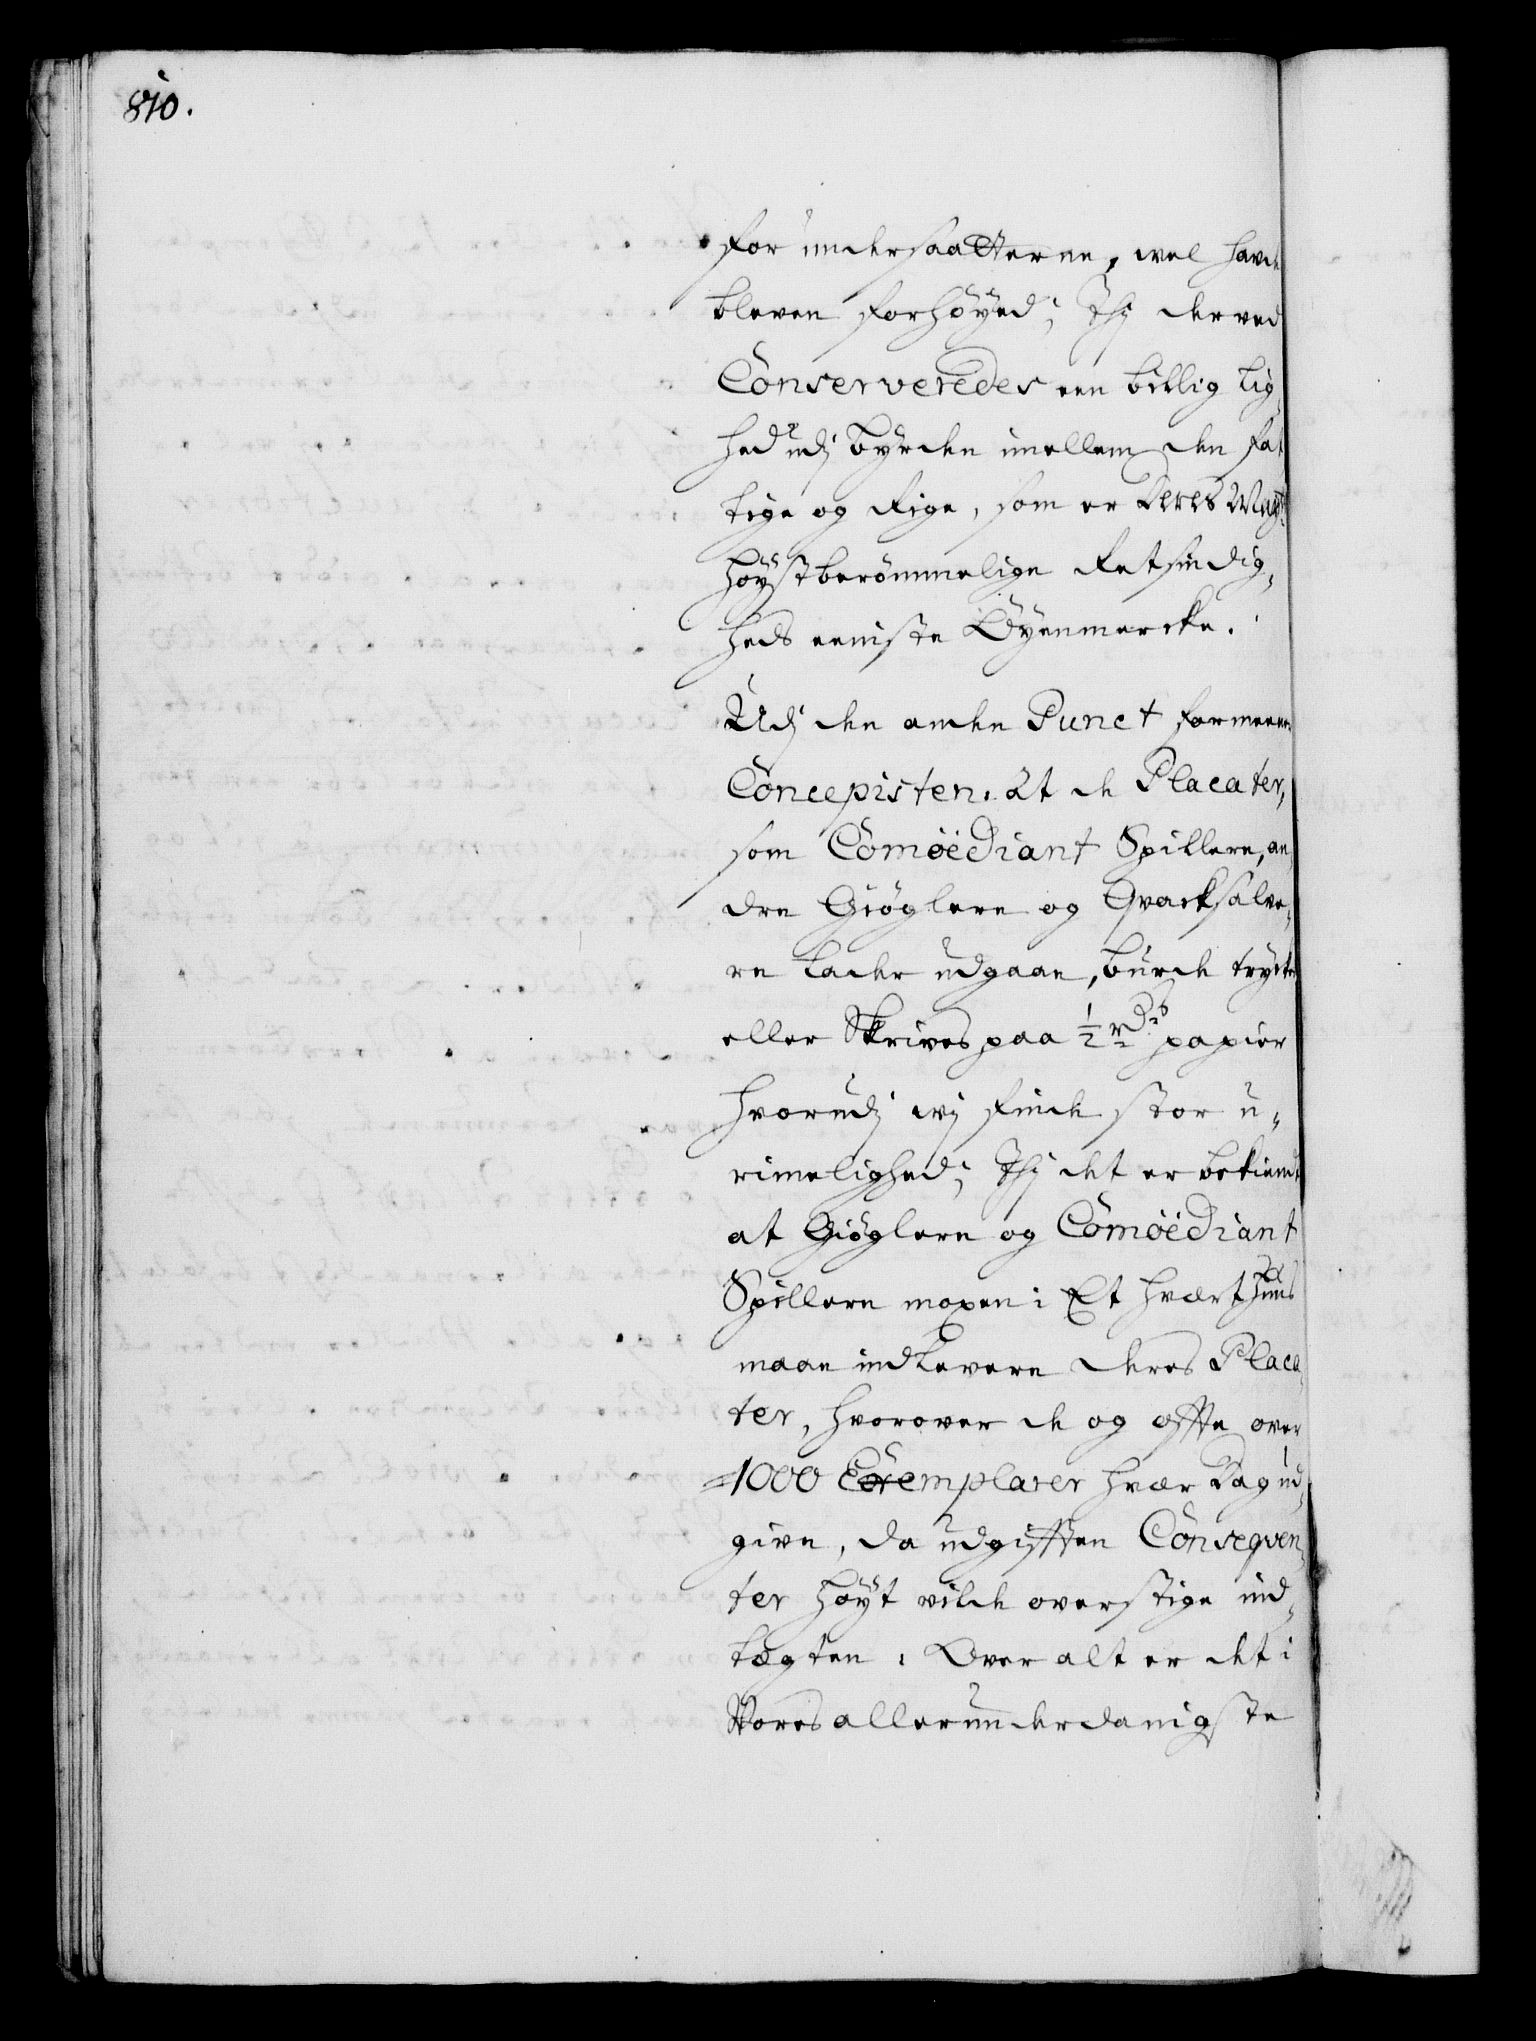 810.
for undersaatterne, wel hafde
bleven forhöyed; Thj derved
Conserveredes een billig lig-
hed udj byrden imellem den fat
tige og Rige, som er Deres Mayts
höystberömmelige Retsindig-
heds eeniste Öyenmercke.
Udj den anden Punct formeener
Concepisten. At de Placater,
som Comoediant Spillere, an
dre Giöglere og Qvacksalve-
re lader udgaae, burde tryckes
eller Skrives paa ½ rdrs papier
hvorudj wj finde stor u-
rimelighed; Thj det er bekiendt
at Giöglere og Comoediant
Spillere moxen i Et hvært Huus
maae indlevere deres Placa-
ter, hvorover de og offte over
1000 Exemplarer hvær Dag ud-
give, da udgifften Conseqven-
ter höyt vilde overstige ind-
tægten. Over alt er det i
Vores allerunderdanigste